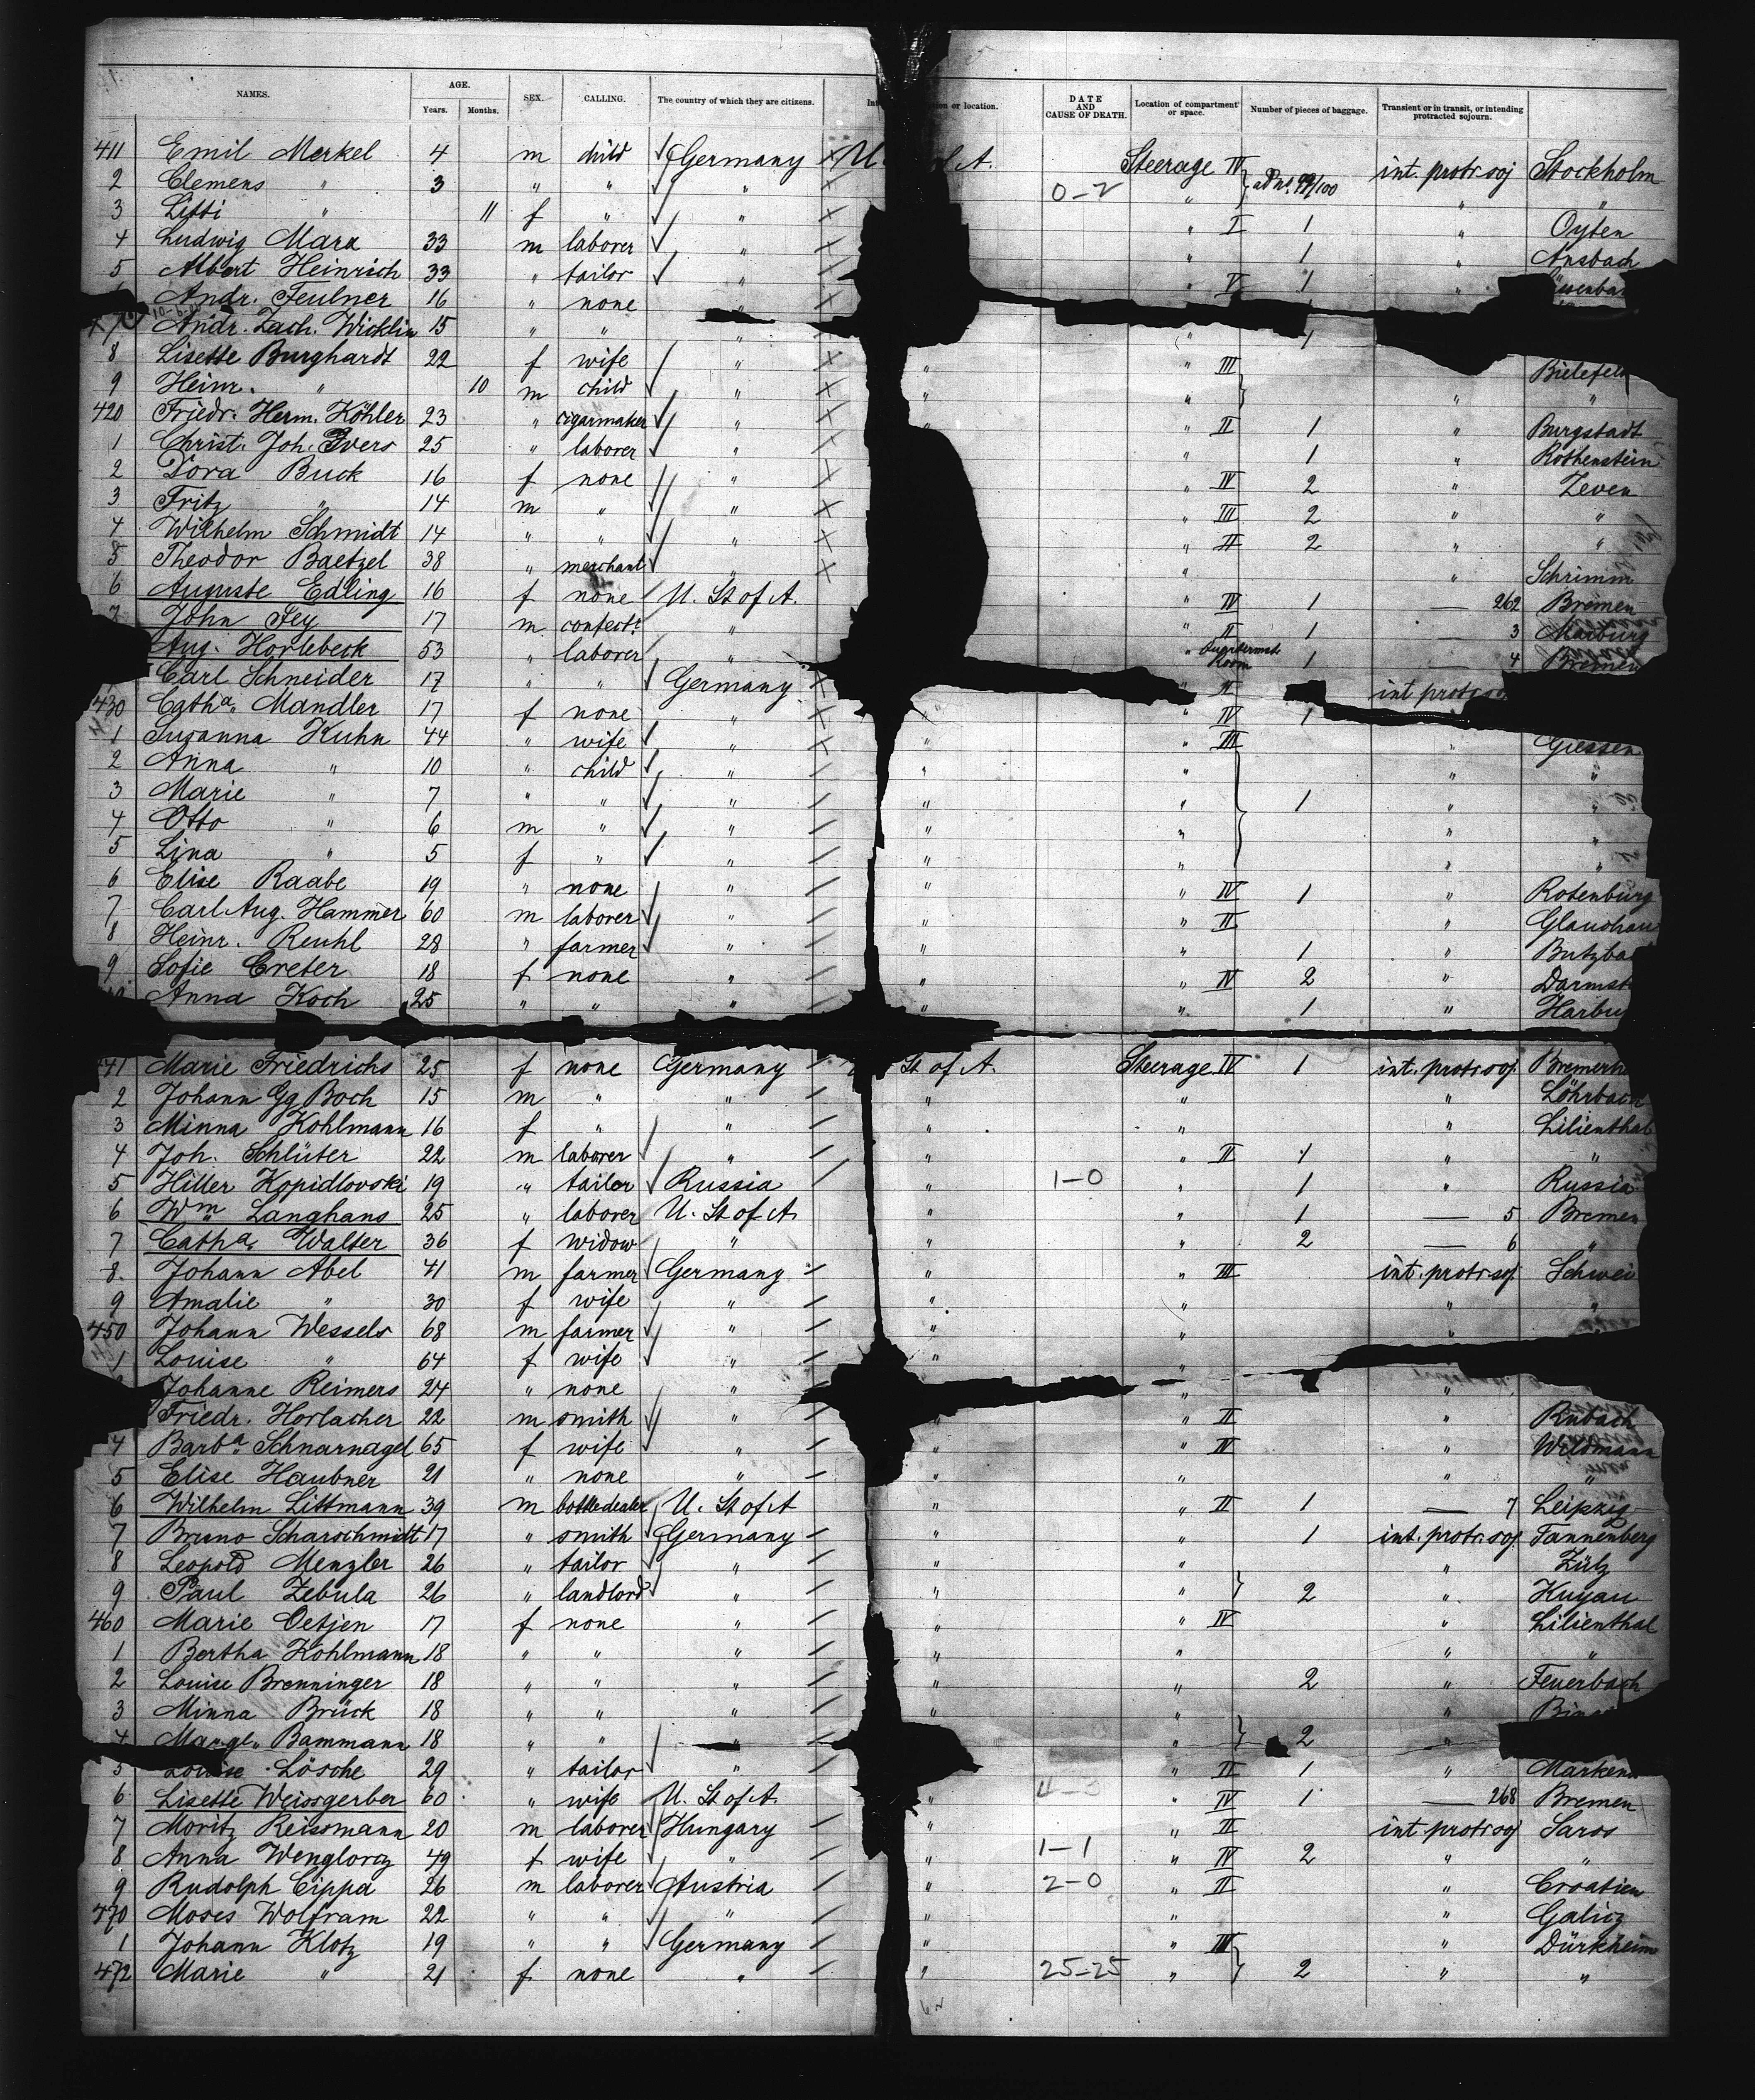 NAMES. AGE. Years. Months. SEX. CALLING. The country of which they are citizens. Int ion or location. DATE AND CAUSE OF DEATH. Location of compartment or space. Number of pieces of baggage. Transient or in transit, or intending protracted sojourn.
411 Emil Merkel 4 m child Germany U. A. Steerage IV int. protr. soj Stockholm
2 Clemens " 3 " " " 0-2 " ad no. 99/100 " "
3 Litti " 11 f " " " I 1 " Oyten
4 Ludwig Marx 33 m laborer " " 1 " Ansbach
5 Albert Heinrich 33 " tailor " " V 1 "
Andr. Feulner 16 " none
7 Andr. Zach. Wicklin 15 " " " " 1
8 Lisette Burghardt 22 f wife " " " III Bielefel
9 Heinr. " 10 m child " " " " "
420 Friedr. Herm. Köhler 23 " cigarmaker " " II 1 " Burgstadt
1 Christ. Joh. Ivers 25 " laborer " " 1 " Rothenstein
2 Dora Buck 16 f none " " IV 2 " Zeven
3 Fritz " 14 m " " " III 2 " "
4 Wilhelm Schmidt 14 " " " " II 2 " "
5 Theodor Baetzel 38 " merchant " " " Schrimm
6 Auguste Edling 16 f none U. St of A. " IV 1 — 262 Bremen
7 John Fey 17 m confect. " " II 1 — 3 Marburg
Aug. Horlebeck 53 " laborer " " Room 1 — 4 Bremen
Carl Schneider 17 " " Germany " II int protr so
430 Cath.a Mandler 17 f none " " " IV 1
1 Susanna Kuhn 44 " wife " " " III " Giessen
2 Anna " 10 " child " " " " "
3 Marie " 7 " " " " " 1 " "
4 Otto " 6 m " " " " " "
5 Lina " 5 f " " " " " "
6 Elise Raabe 19 " none " " " IV 1 " Rotenburg
7 Carl Aug. Hammer 60 m laborer " " " II " Glauchau
8 Heinr. Reuhl 28 " farmer " " " 1 " Butzba
9 Sofie Creter 18 f none " " " IV 2 " Darmst
Anna Koch 25 " " " " " 1 " Harbu
441 Marie Friedrichs 25 f none Germany St of A. Steerage IV 1 int. protr soj. Bremerh
2 Johann Gg Boch 15 m " " " " " Löhrbach
3 Minna Kohlmann 16 f " " " " " Lilienthal
4 Joh. Schlüter 22 m laborer " " " II 1 " "
5 Hiller Kopidlovski 19 " tailor Russia " 1-0 " 1 " Russia
6 Wm Langhans 25 " laborer U. St of A. " " 1 — 5 Bremen
7 Cath.a Walter 36 f widow " " " 2 — 6 "
8. Johann Abel 41 m farmer Germany " " III int. protr. soj. Schwei
9 Amalie " 30 f wife " " " " "
450 Johann Wessels 68 m farmer " " " "
1 Louise " 64 f wife " " "
Johanne Reimers 24 " none " " "
Friedr. Horlacher 22 m smith " " " II " Rubach
4 Barb.a Schnarnagel 65 f wife " " " IV " Wildmann
5 Elise Haubner 21 " none " " " " "
6 Wilhelm Littmann 39 m bottledealer U. St of A " " II 1 — 7 Leipzig
7 Bruno Scharschmidt 17 " smith Germany " 1 int. protr. soj. Tannenberg
8 Leopold Menzler 26 " tailor " " " " Zülz
9 Paul Zebula 26 " landlord " " " 2 " Kujau
460 Marie Oetjen 17 f none " " " IV " Lilienthal
1 Bertha Kohlmann 18 " " " " " " "
2 Louise Brenninger 18 " " " " " 2 " Feuerbach
3 Minna Brück 18 " " " " " "
4 Margt. Bammann 18 " " " " 2 "
5 Louise Lösche 29 " tailor " " II 1 " Marken
6 Lisette Weissgerber 60 " wife U. St of A. " " IV 1 — 268 Bremen
7 Moritz Reissmann 20 m laborer Hungary " " II int protr soj Saros
8 Anna Wenglorz 49 f wife " " 1-1 " IV 2 " "
9 Rudolph Cippa 26 m laborer Austria " 2-0 " II " Croatien
470 Moses Wolfram 22 " " " " " " Galiz
1 Johann Klotz 19 " " Germany " " III " Dürkheim
472 Marie " 21 f none " " 25-25 " 2 " "